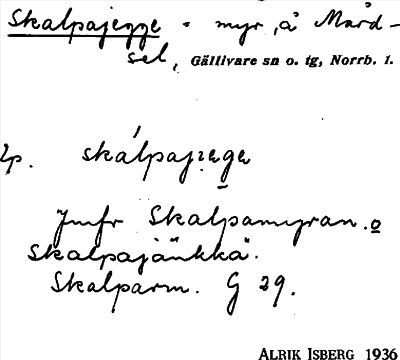 Skalpajegge - myr, å Mård-
sel, Gällivare sn o. tg, Norrb. l.
lp. skálpajεgε
Jmfr Skalpamyran. o
Skalpajäŋkkä.
Skalparm. G 29.
ALRIK ISBERG 1936